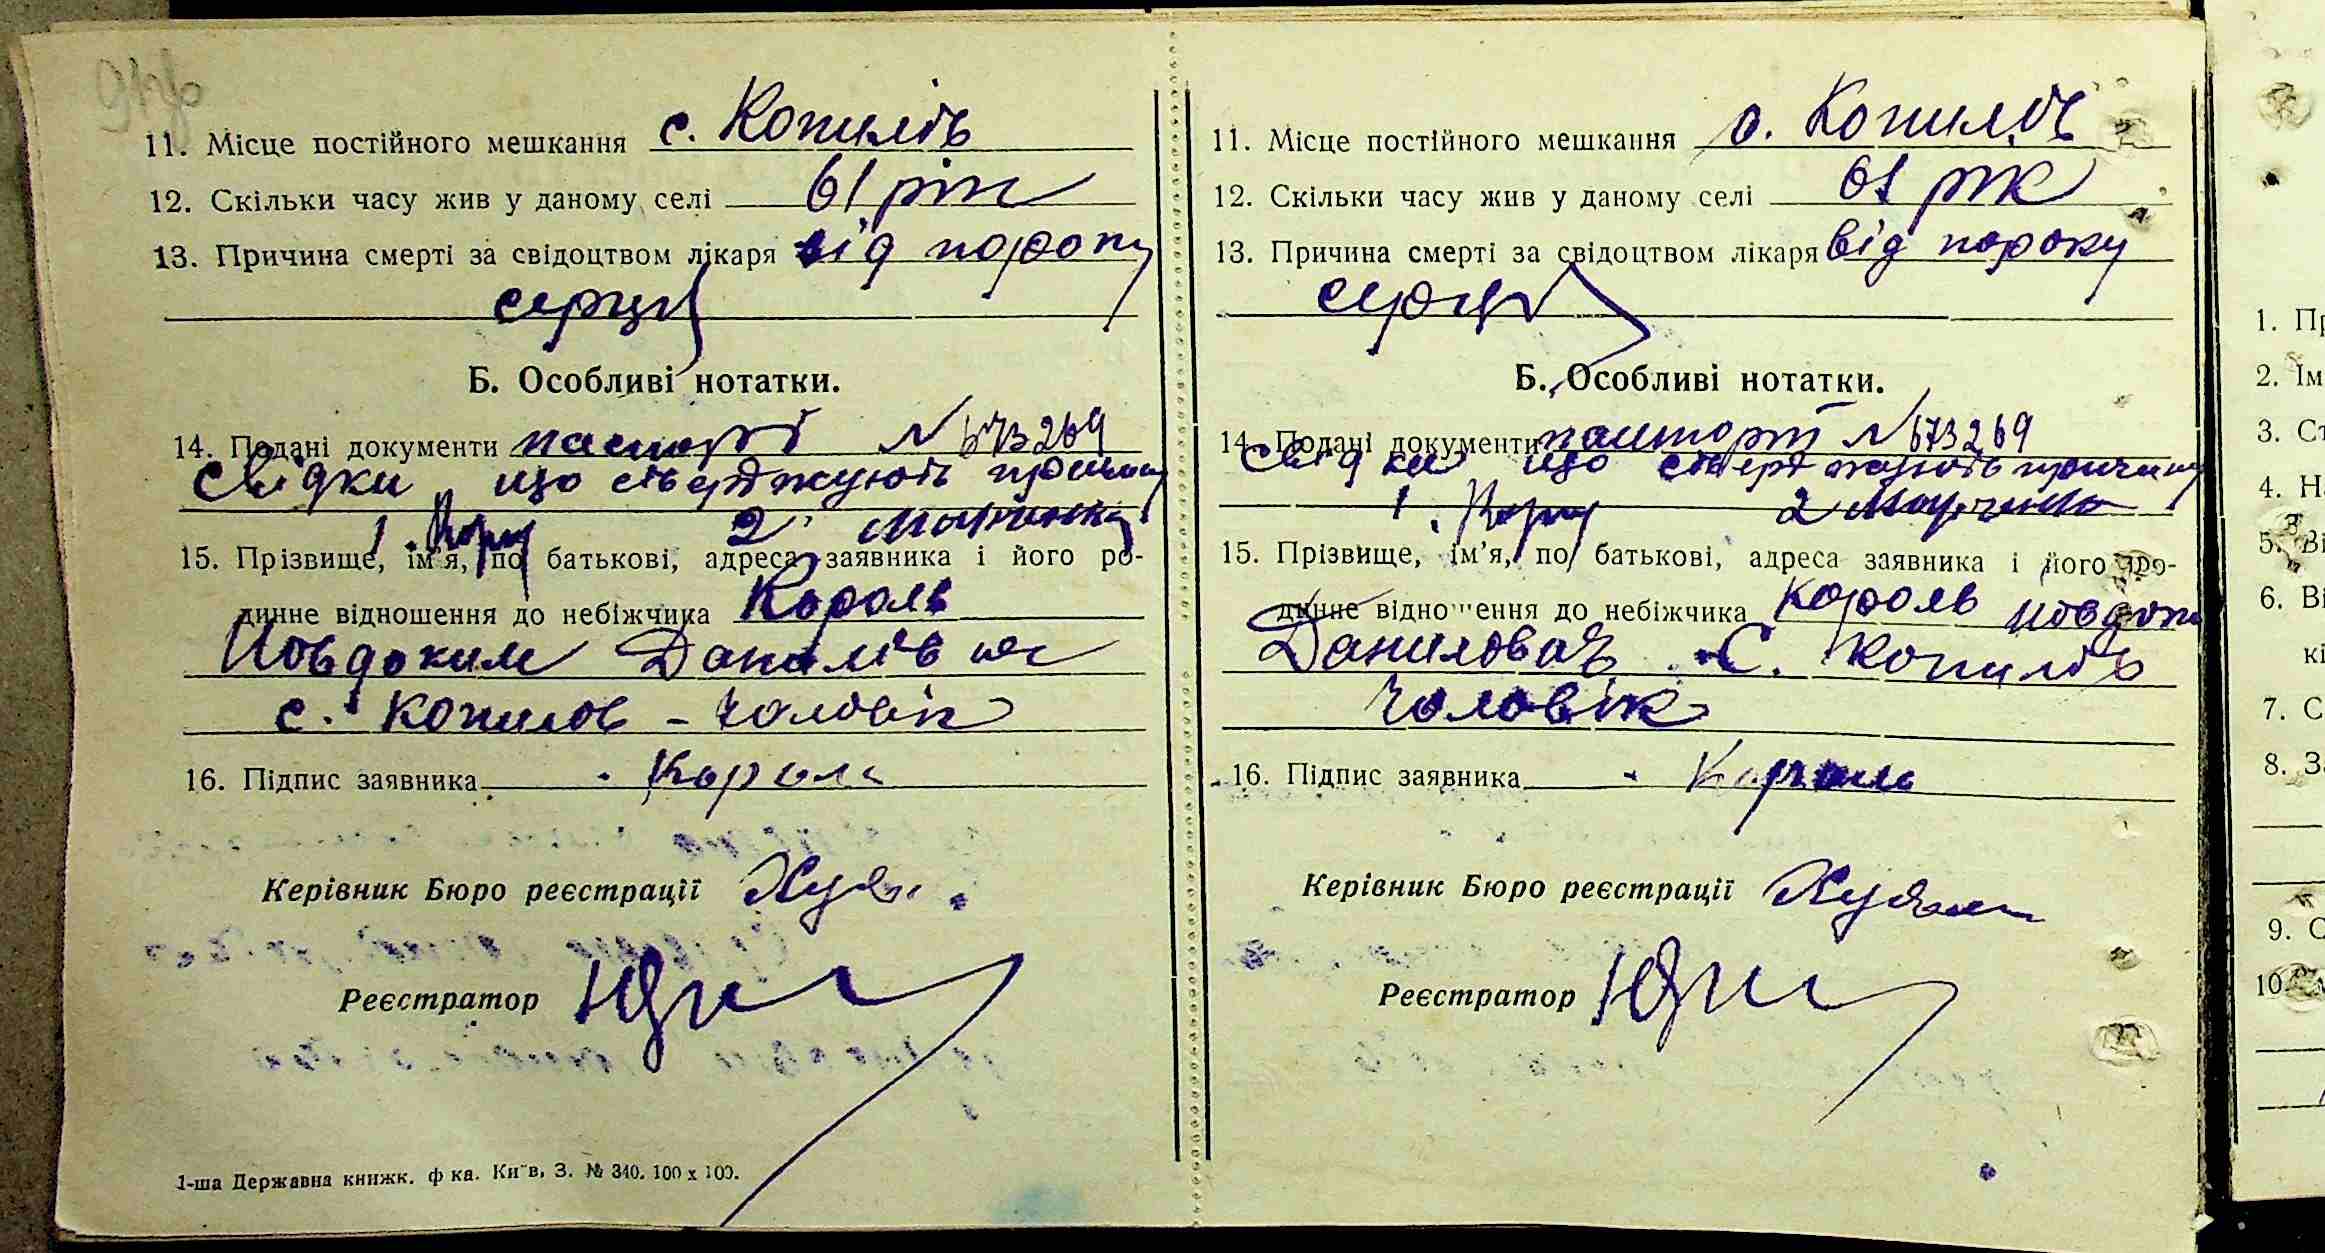 11. Місце постійного мешкання с. Копилів
12. Скільки часу жив у даному селі 61 рік
13. Причина смерті за свідоцтвом лікаря від пороку
серця
Б. Особливі нотатки.
14. Подані документи паспорт № 673269
Свідки що стверджують причину
1. 2.
15. Прізвище, ім'я, по батькові, адреса заявника і його ро-
динне відношення до небіжчика Король
Йовдоким Данилович
с. Копилов - чоловік
16. Підпис заявника Король
Керівник Бюро реєстрації
Реєстратор
1-ша Державна книжк. ф ка. Київ, З. № 340. 100 х 100.
11. Місце постійного мешкання с. Копилів
12. Скільки часу жив у даному селі 61 рік
13. Причина смерті за свідоцтвом лікаря від пороку
серця
Б. Особливі нотатки.
14. Подані документи паспорт № 673269
Свідки що стверджують причину
1. 2
15. Прізвище, ім'я, по батькові, адреса заявника і його ро-
динне відношення до небіжчика Король Йовдоким
Данилович с. Копилів
чоловік
16. Підпис заявника Король
Керівник Бюро реєстрації
Реєстратор
1. Пр
2. Ім
3. Ст
4. Н
5. Ві
6. Ві
кі
7. С
8. За
9. С
10.